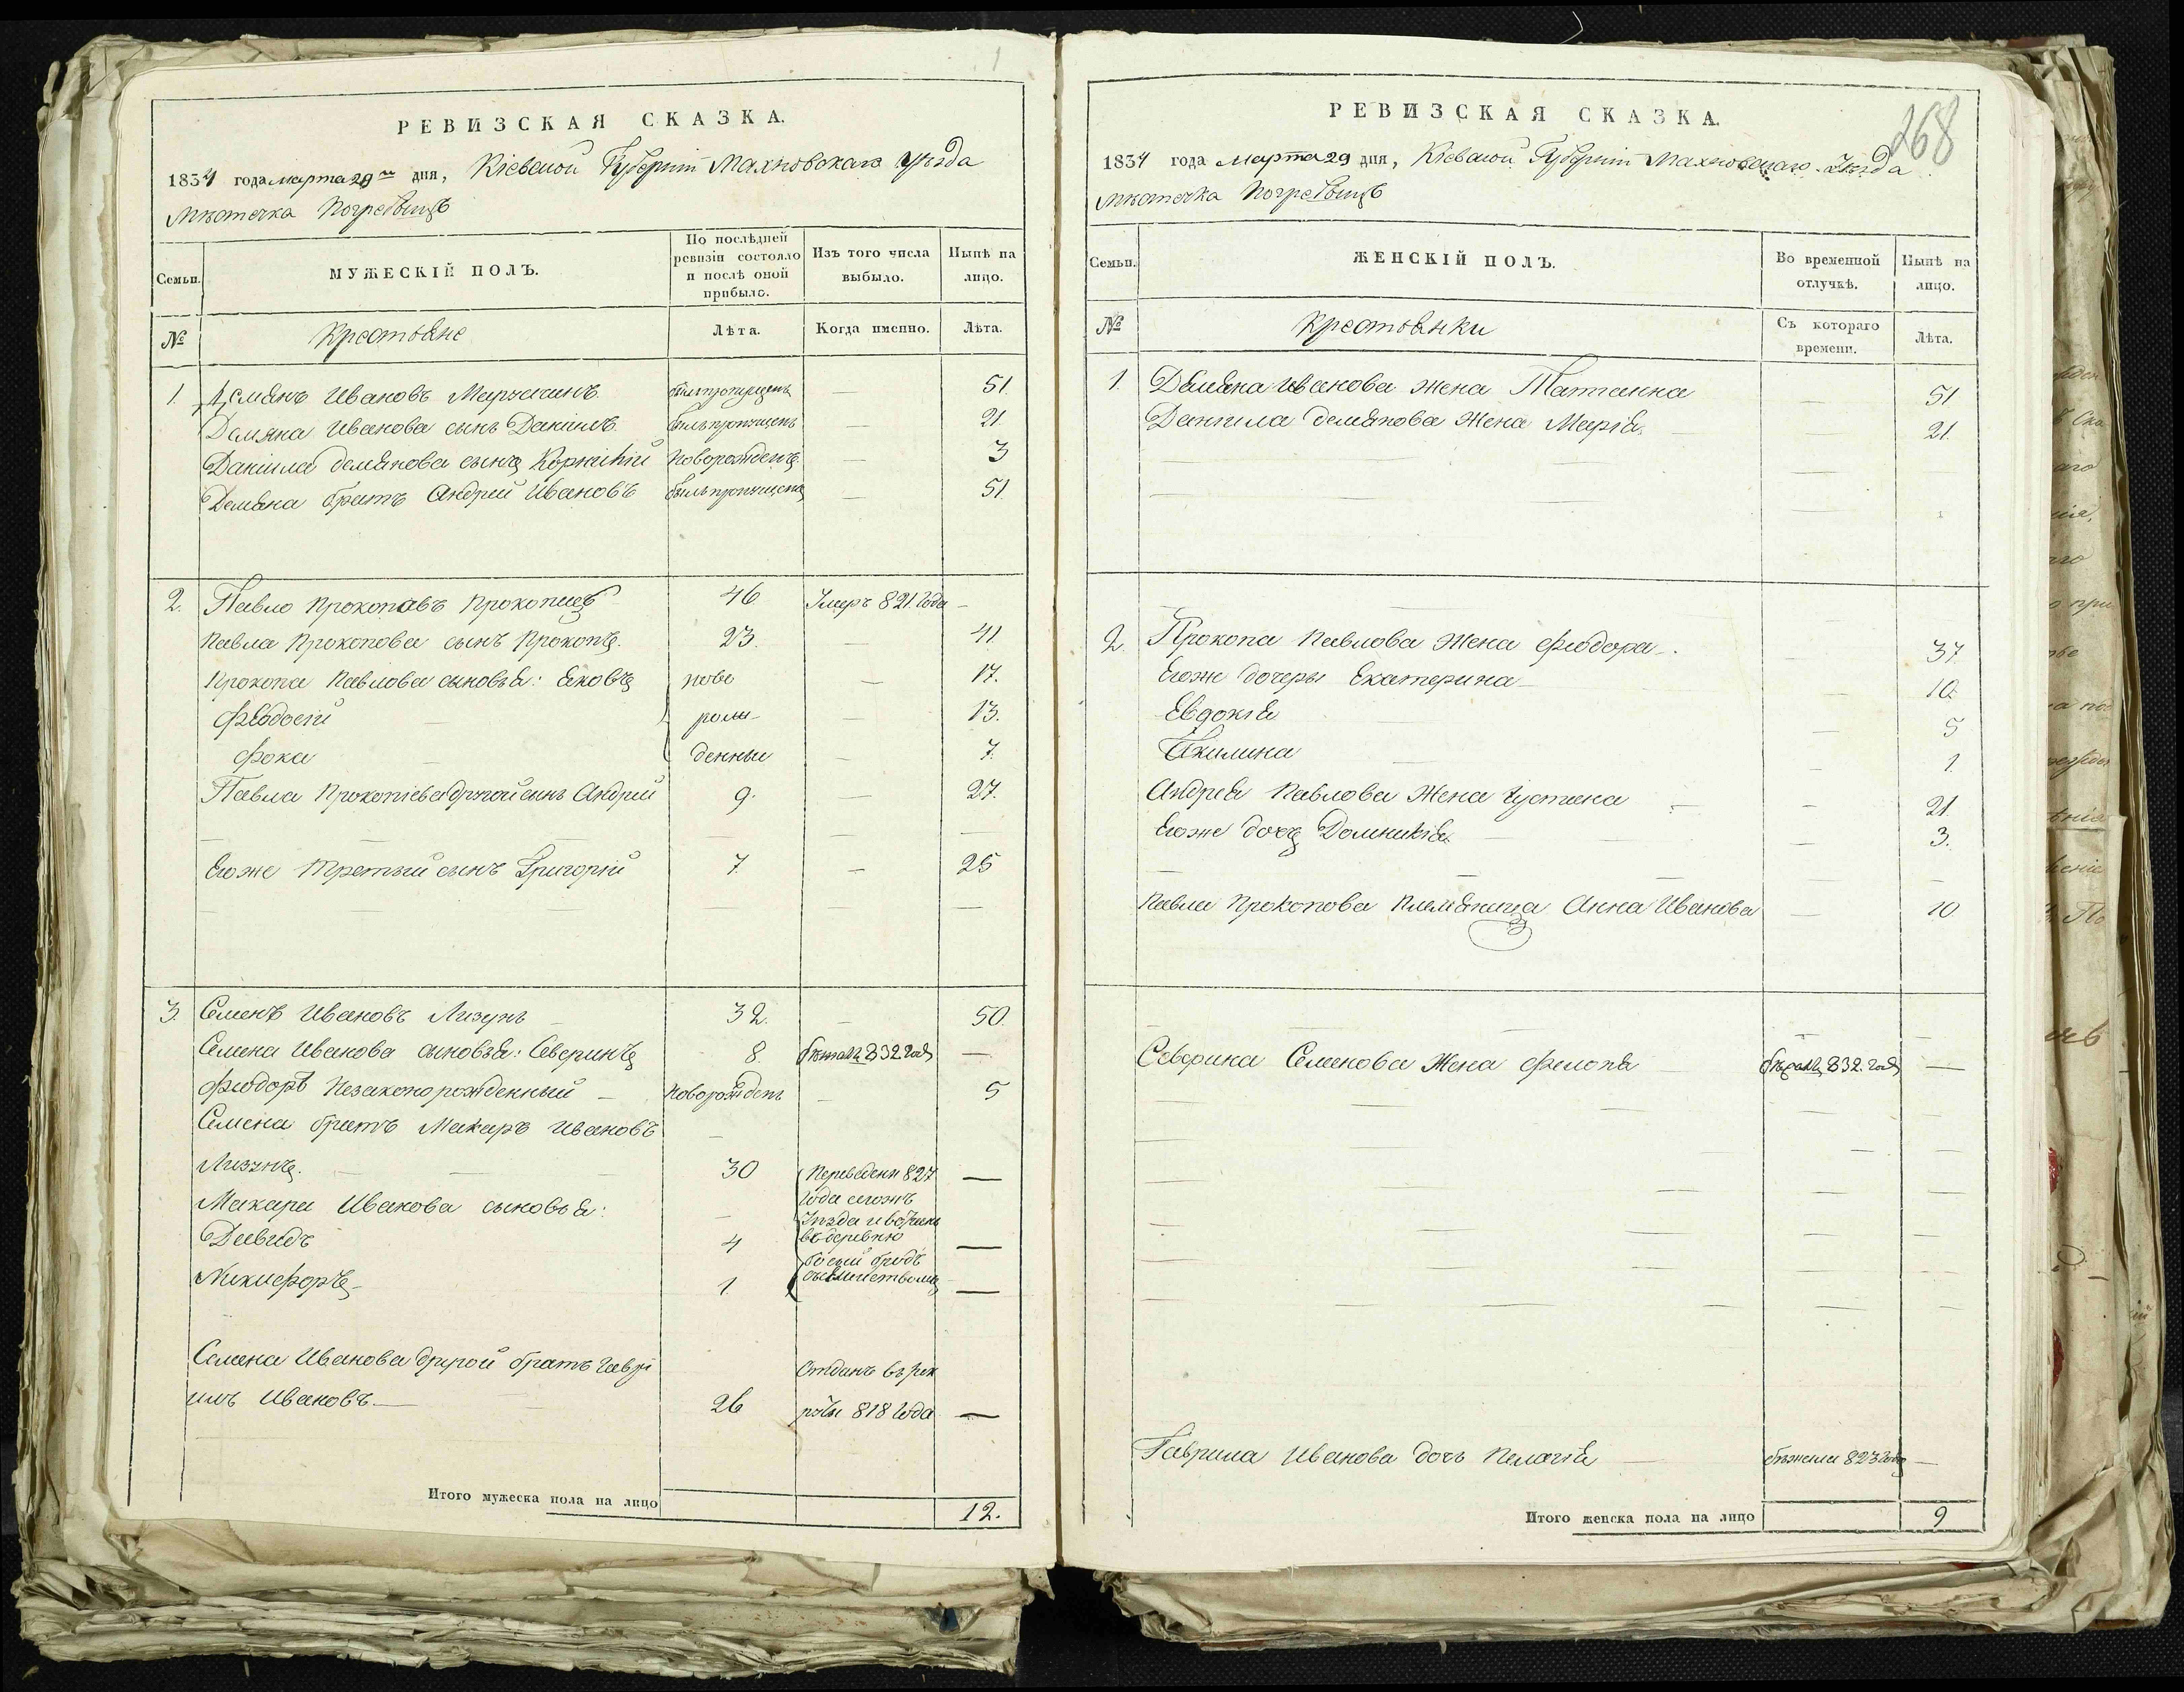 1
РЕВИЗСКАЯ СКАЗКА.
1834 года марта 29 дня, Кіевской Губерніи Махновскаго Уѣзда
Мѣстечка Погребищъ
Семьи.
МУЖЕСКІЙ ПОЛЪ.
По послѣдней ревизіи состояло и послѣ оной прибыло.
Изъ того числа выбыло.
Нынѣ на лицо.
№
Крестьяне
Лѣта.
Когда именно.
Лѣта.
1. Демянъ Ивановъ былъ пропущенъ — 51
Демяна Иванова сынъ Даніилъ былъ пропущенъ — 21
Даніила Демянова сынъ Корнилій новорожденъ — 3
Демяна братъ Андрей Ивановъ былъ пропущенъ — 51
2. Павло Прокоповъ Прокопецъ 46 Умеръ 821 года —
Павла Прокопова сынъ Прокопъ. 23. — 41
Прокопа Павлова сыновья: Яковъ ново — 17.
Феодосій рож — 13.
Фока денные — 7.
Павла Прокопіева другой сынъ Андрей 9. — 27.
Егоже Третый сынъ Григорій 7 — 25
3. Семенъ Ивановъ Лизунъ 32. — 50.
Семена Иванова сыновья: Северинъ 8 бѣжалъ 832 года —
Феодоръ Незаконорожденный — новорожденъ — 5
Семена братъ Макаръ Ивановъ —
Лизунъ. 30 Переведены 827 —
года
Макара Иванова сыновья: —
Уѣзда
Давидъ 4 въ деревню —
бродъ
Никифоръ 1 съ семействомъ —
Семена Иванова другой братъ Гаврі Отданъ въ рек
илъ Ивановъ — 26 руты 818 года —
Итого мужеска пола на лицо 12.
268
РЕВИЗСКАЯ СКАЗКА.
1834 года марта 29 дня, Кіевской Губерніи Махновскаго Уѣзда
Мѣстечка Погребищъ
Семьи.
ЖЕНСКІЙ ПОЛЪ.
Во временной отлучкѣ.
Нынѣ на лицо.
№
Крестьянки
Съ котораго времени.
Лѣта.
1. Демяна Иванова жена Татіанна — 51
Даніила Демянова жена Марія — 21.
2. Прокопа Павлова жена Феодора — 37
Егоже дочеры Екатерина — 10
Евдокія — 5
Акилина — 1
Андрея Павлова жена Іустина — 21
Егоже дочъ Домникія — 3.
Павла Прокопова племяница Анна Иванова — 10
Северина Семенова жена бѣжала 832. года —
Гаврила Иванова дочъ Пелагія — бѣжала 823 года —
Итого женска пола на лицо 9